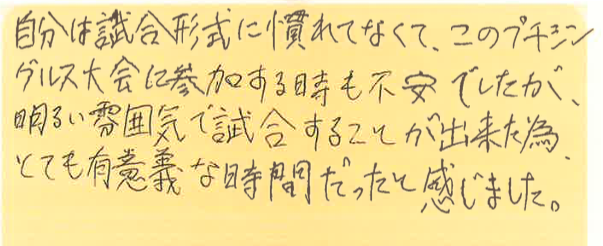 自分は試合形式に慣れてなくて、このプチシン
グルス大会に参加する時も不安でしたが、
明るい雰囲気で試合することが出来た為、
とても有意義な時間だったと感じました。